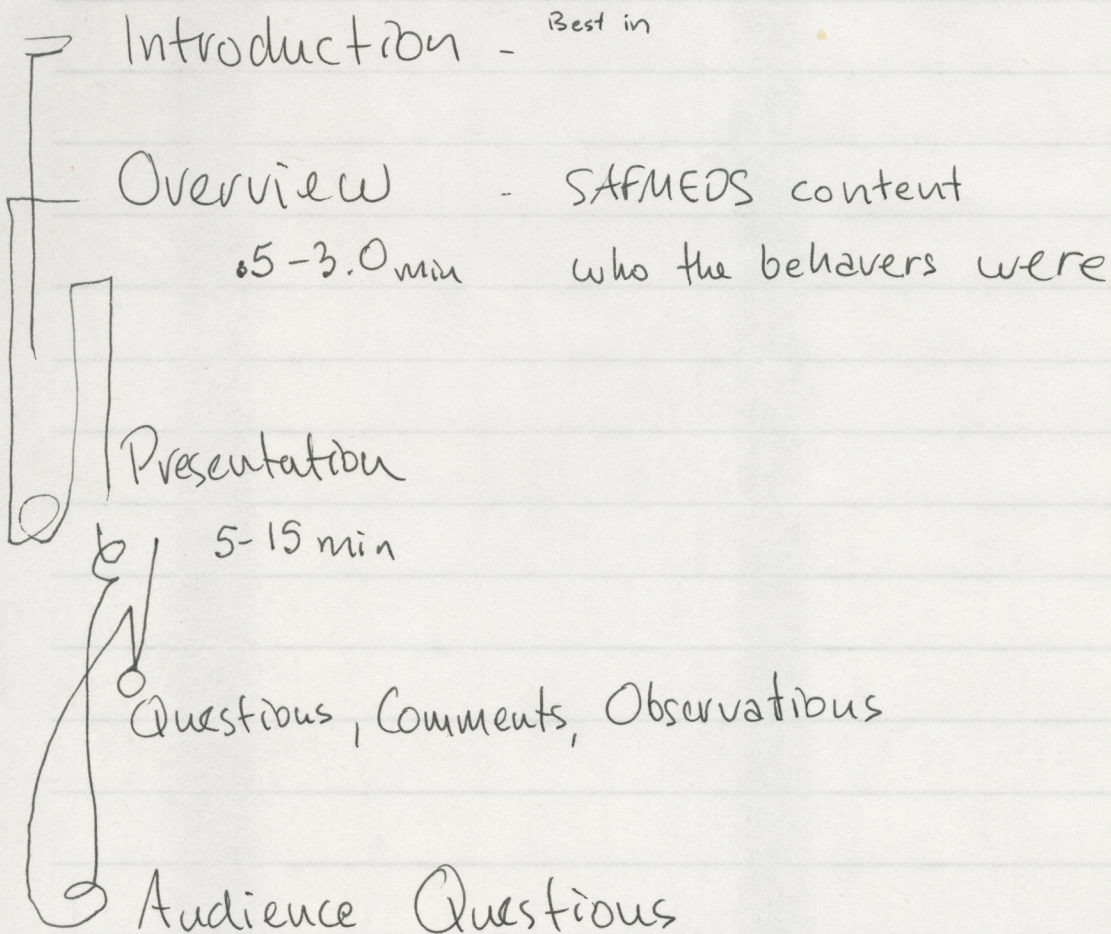 Introduction - Best in
Overview - SAFMEDS content
.5-3.0 min who the behavers were
Presentation
5-15 min
Questions, Comments, Observations
Audience Questions